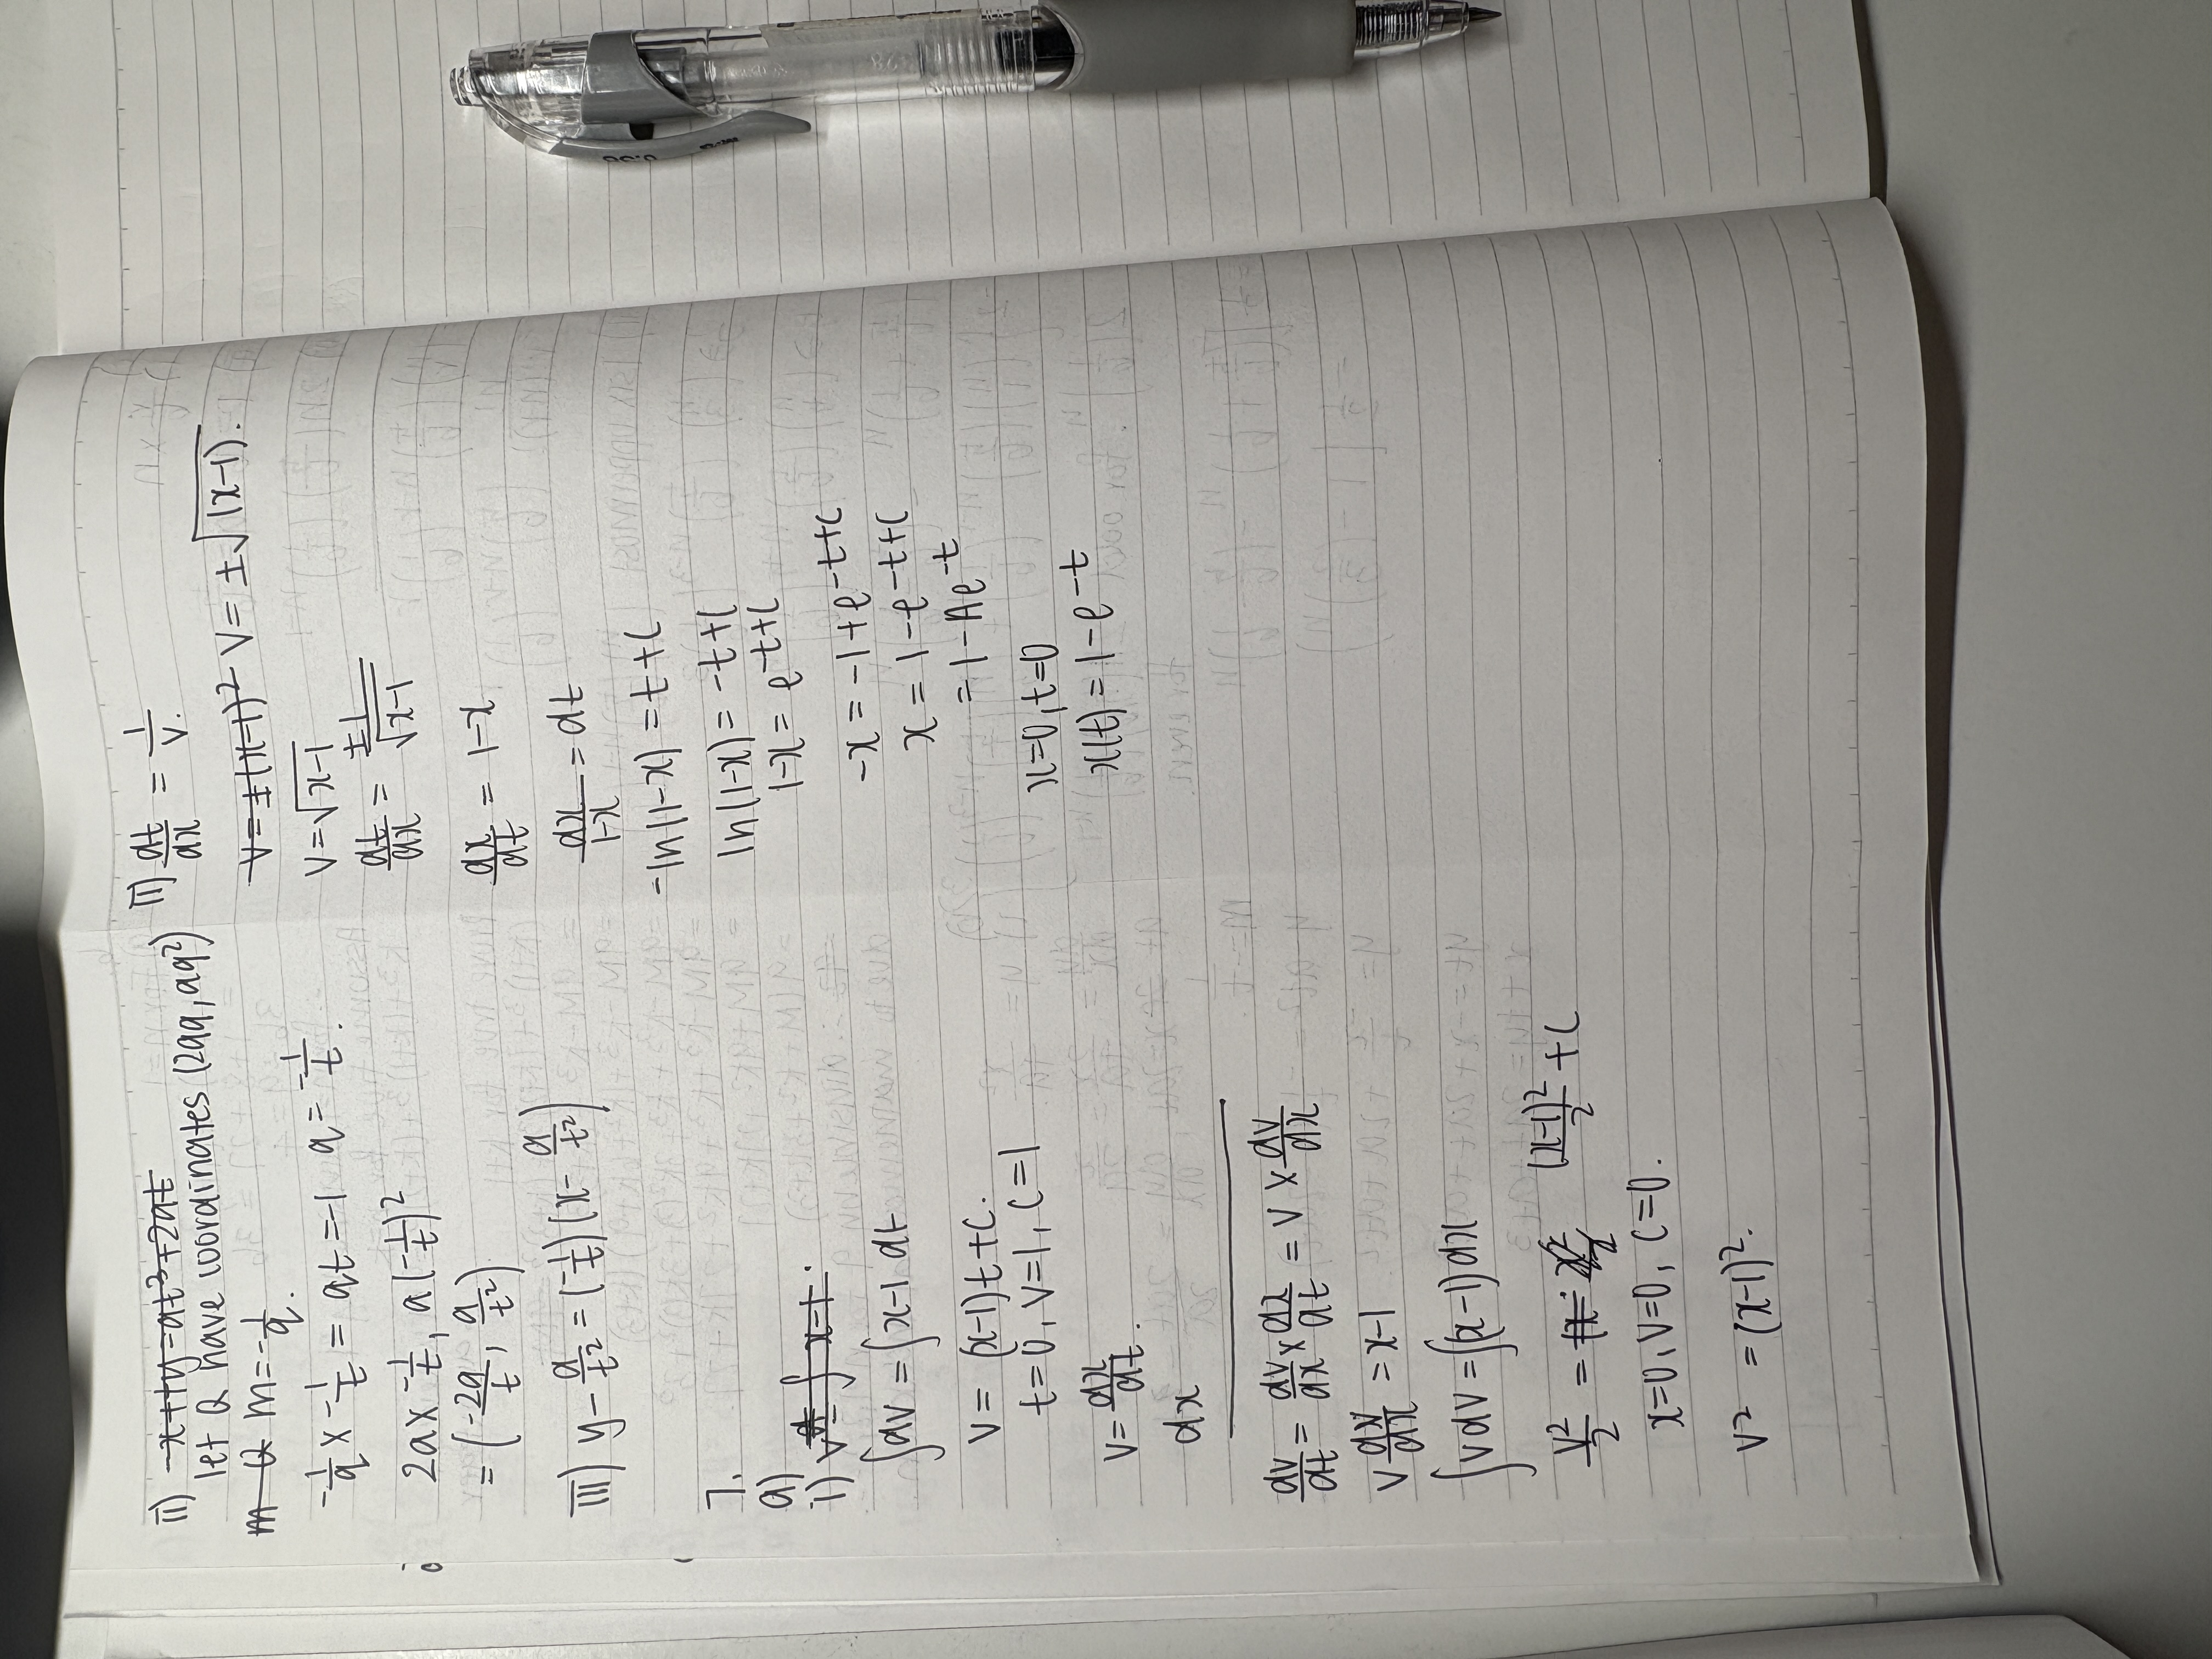 ii) -x+ty=at³+2at
let Q have coordinates (2aq, aq²)
m Q m = -1/q.
-1/q × -1/t = qt = -1 q = -1/t.
2a × -1/t, a(-1/t)²
= (-2a/t, a/t²)
iii) y - a/t² = (-1/t)(x - a/t²)
7.
a)
i) x-1.
∫dv = ∫x-1 dt
v = (x-1)t + c.
t=0, v=1, c=1
v = dx/dt.
dx
dv/dt = dv/dx × dx/dt = v × dv/dx
v dv/dx = x-1
∫v dv = ∫(x-1) dx
v²/2 = (x-1)²/2 + c
x=0, v=0, c=0.
v² = (x-1)².
ii) dt/dx = 1/v.
v = ±(x-1)² v = ±√(x-1).
v = √x-1
dt/dx = ±1/√x-1
dx/dt = 1-x
dx/1-x = dt
-ln(1-x) = t+c
ln(1-x) = -t+c
1-x = e^-t+c
-x = -1+e^-t+c
x = 1-e^-t+c
= 1-Ae^-t
x=0, t=0
x(t) = 1-e^-t